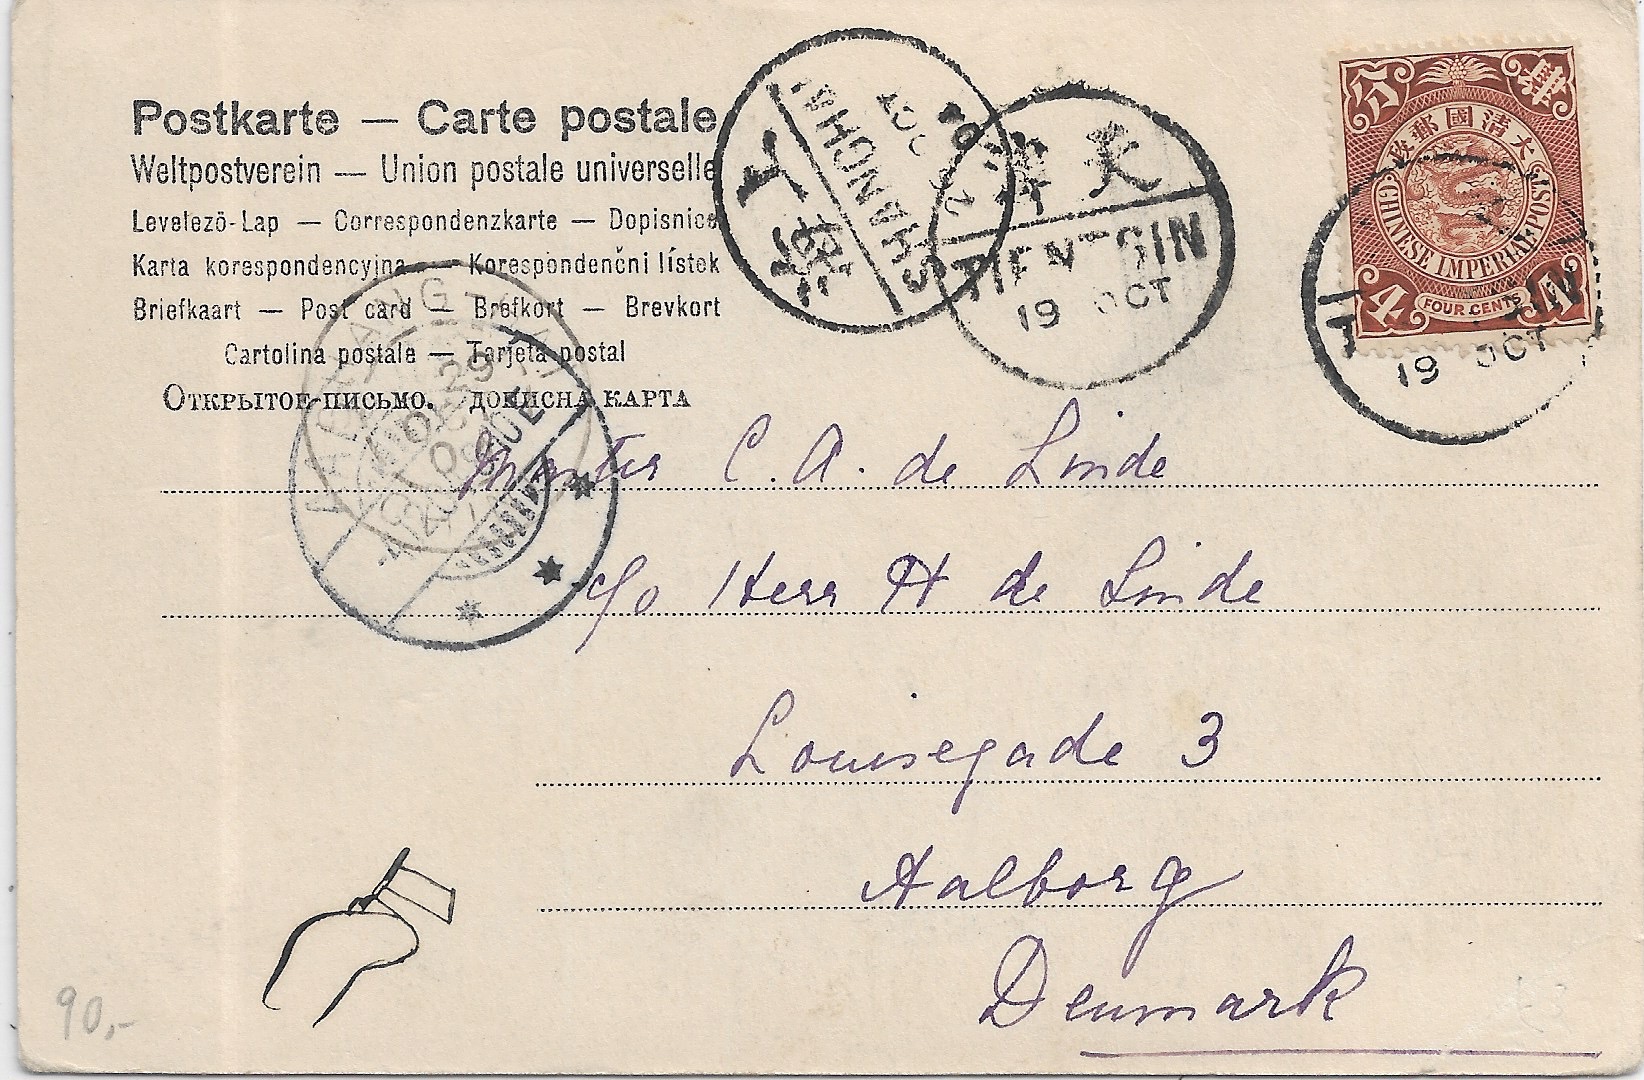 Postkarte — Carte postale
Weltpostverein — Union postale universelle
Levelezö-Lap — Correspondenzkarte — Dopisnice
Karta korespondencyjna — Korespondenčni lístek
Briefkaart — Post card — Brefkort — Brevkort
Cartolina postale — Tarjeta postal
Открытое письмо. дописна карта
SHANGHAI
OCT
上
海
天
津
TIENTSIN
19 OCT
分 肆
大清國郵政
CHINESE IMPERIAL POST
4 FOUR CENTS 4
19 OCT
29
C. A. de Linde
c/o Herr H de Linde
Louisegade 3
Aalborg
Denmark
90,-